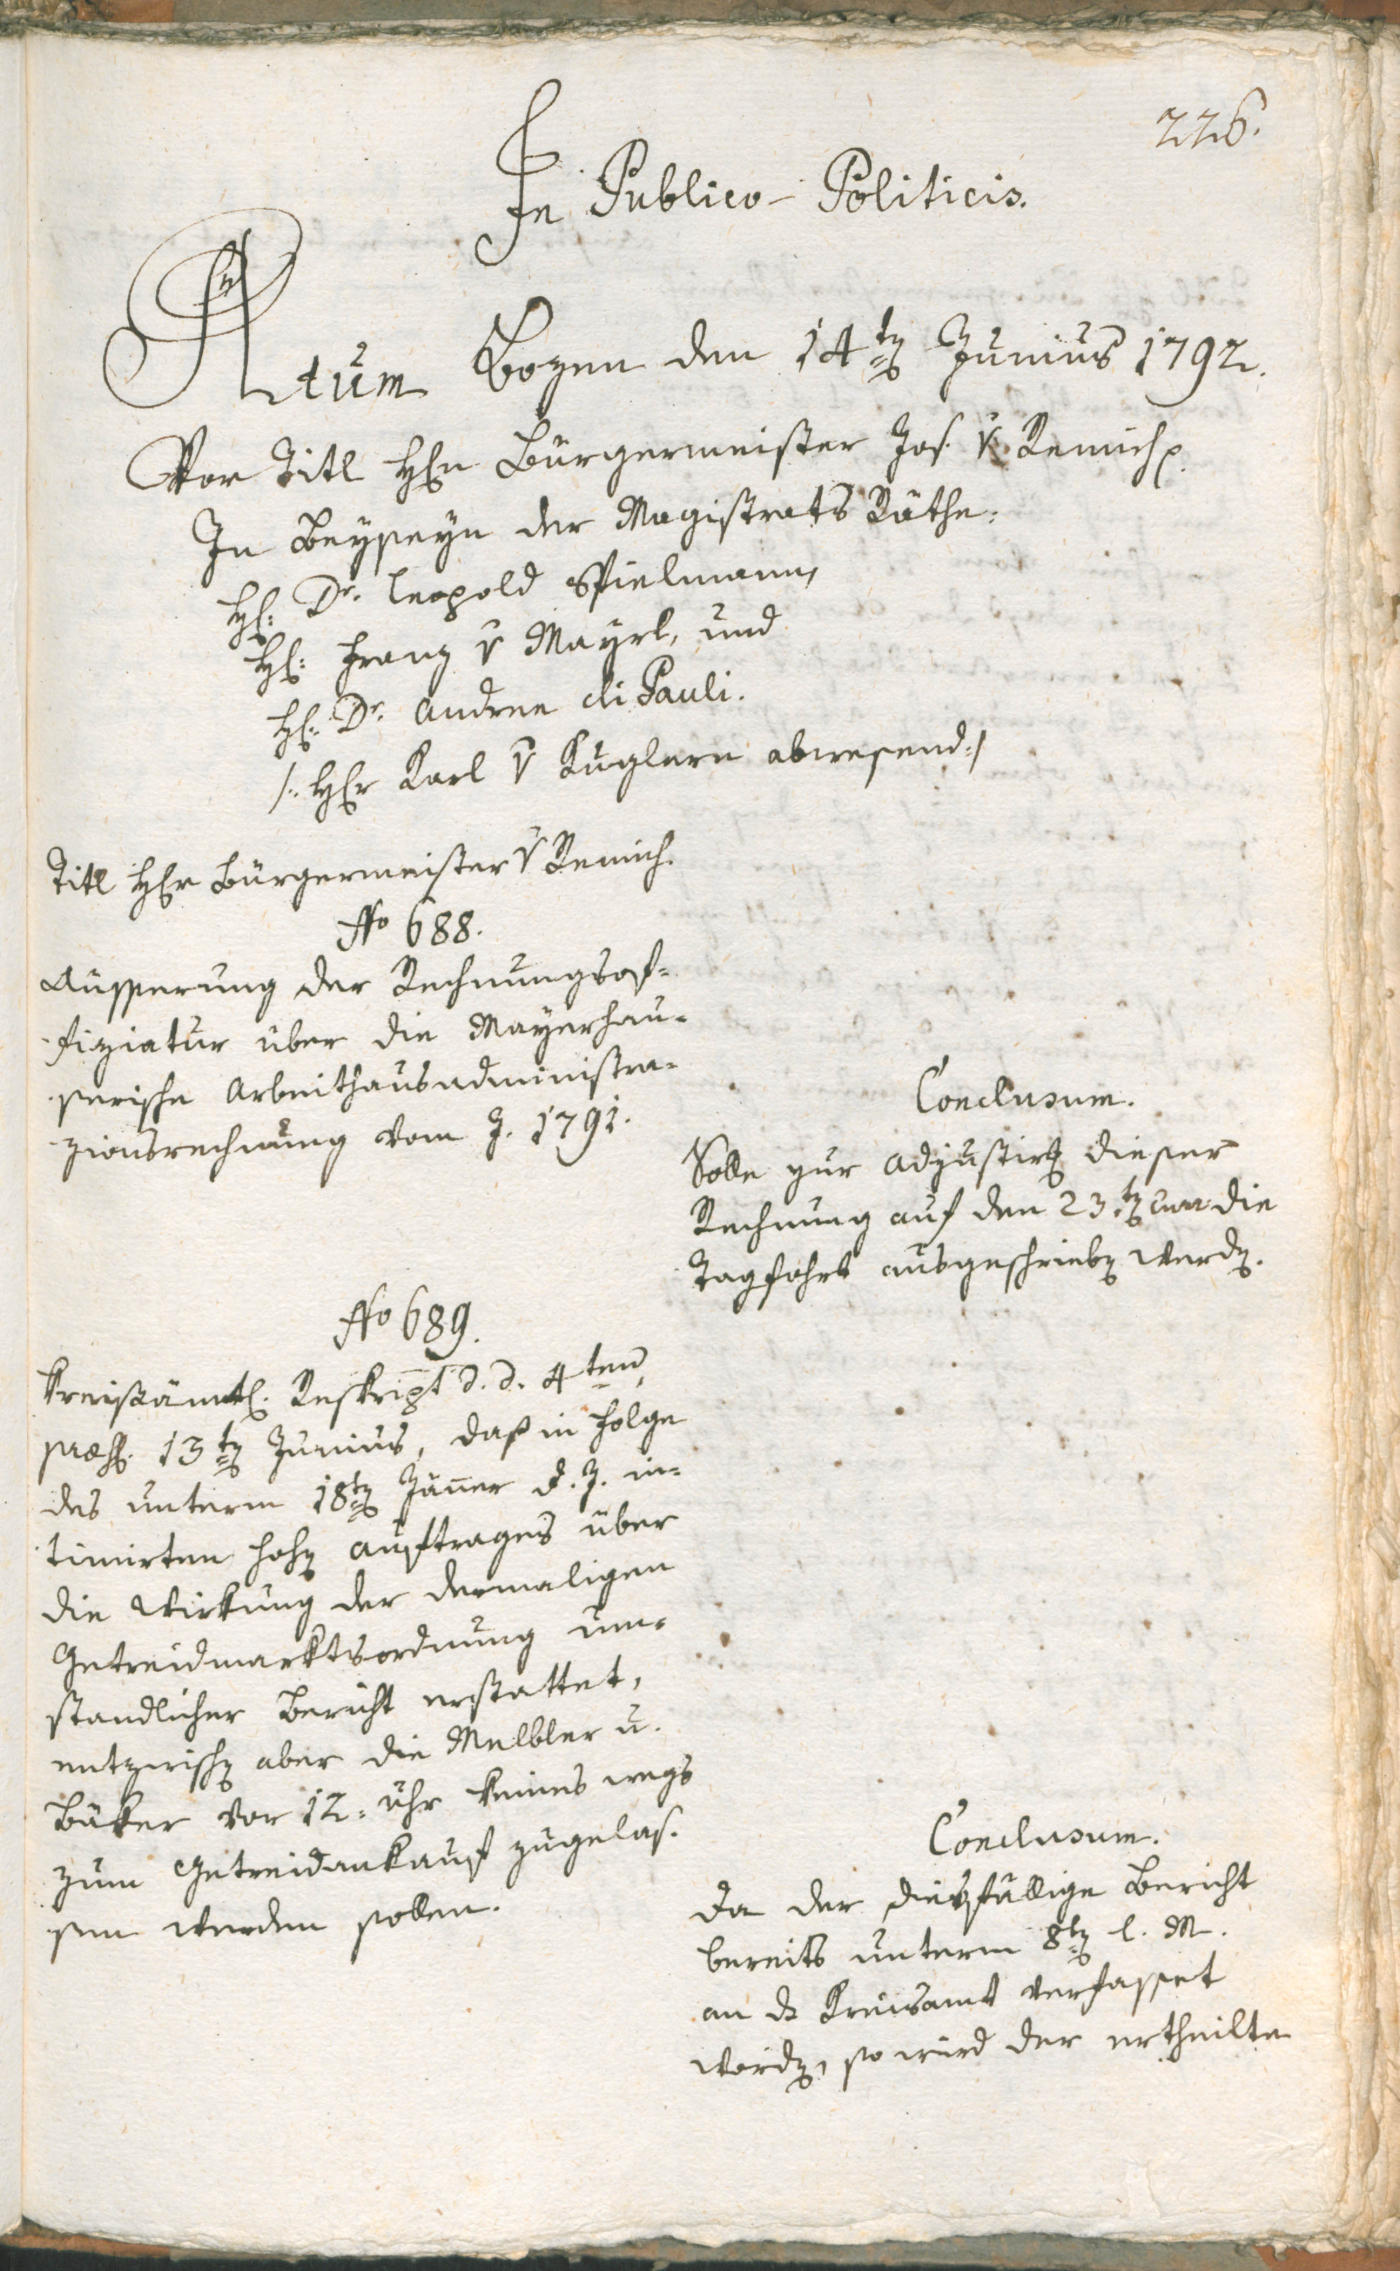 226.
In Publico-Politicis.
Actum Bozen den 14ten Junius 1792.
Vor Titl Hrn Bürgermeister Jos. v. Remich
In Beyseyn der Magistrats Räthe:
Hr: Dr. Leopold Spielmann,
Hr: Franz v Mayrl, und
Hr: Dr. Andree di Pauli.
/: Herr Karl v Kuglern abwesend :/
Titl Herr Bürgermeister v Remich.
No 688.
Äusserung der Rechnungsof-
fiziatur über die Mayerhau-
serische Arbeithausadministra-
zionsrechnung vom J. 1791.
Conclusum.
Solle zur Adjustirg dieser
Rechnung auf den 23ten curr die
Tagfahrt ausgeschrieben werden.
No 689.
Kreisämtl. Reskript d. d. 4ten,
præs. 13ten Junius, daß in Folge
des unterm 18ten Jänner d. J. in-
timirten hohen Auftrages über
die Wirkung der dermaligen
Getreidmarktsordnung um-
standlicher Bericht erstattet,
entzwischen aber die Melbler u.
Bäker vor 12: Uhr keines wegs
zum Getreidankauf zugelas-
sen werden sollen.
Conclusum.
Da der diesfällige Bericht
bereits unterm 8ten l. M.
an das Kreisamt verfasset
worden, so wird der ertheilte